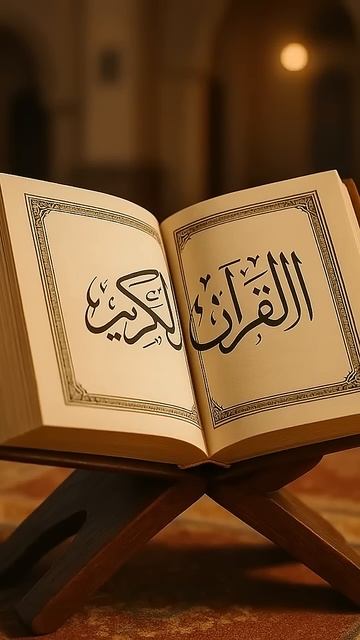 القران الكريم